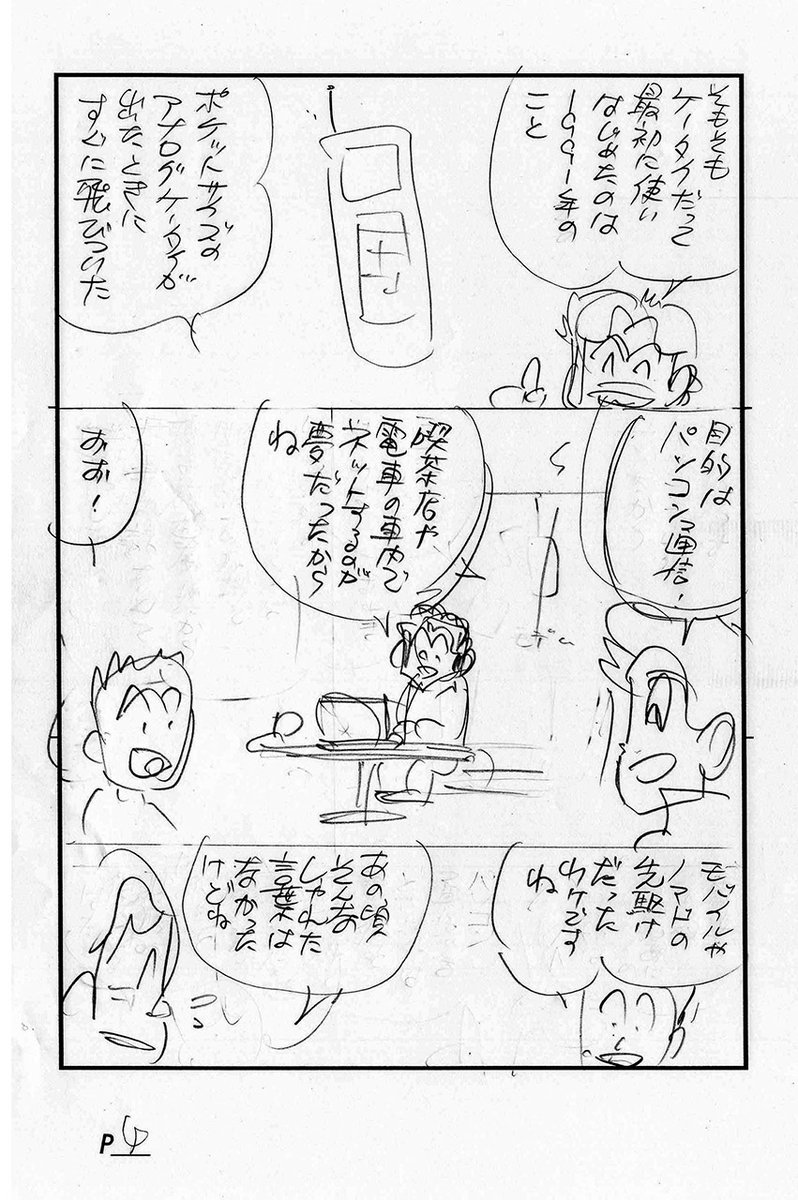 そもそも
ケータイだって
最初に使い
はじめたのは
1991年の
こと
ポケットサイズの
アナログケータイが
出たときに
すぐに飛びついた
目的は
パソコン通信!
モデム
喫茶店や
電車の車内で
ネットするのが
夢だったから
ね
おお!
モバイルや
ノマドの
先駆け
だった
ワケです
ね
あの頃
そんな
しゃれた
言葉は
なかった
けどね
P4